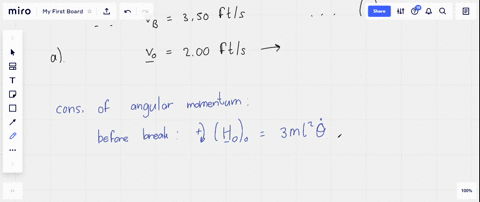 miro My First Board Share
v_B = 3.50 ft/s
a). v_0 = 2.00 ft/s →
cons. of angular momentum:
before break: +↻ (H_0)_0 = 3ml²θ̇
100%